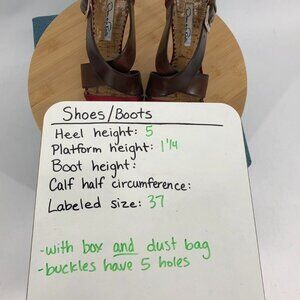 Shoes/Boots
Heel height: 5
Platform height: 1 1/4
Boot height:
Calf half circumference:
Labeled size: 37
-with box and dust bag
-buckles have 5 holes